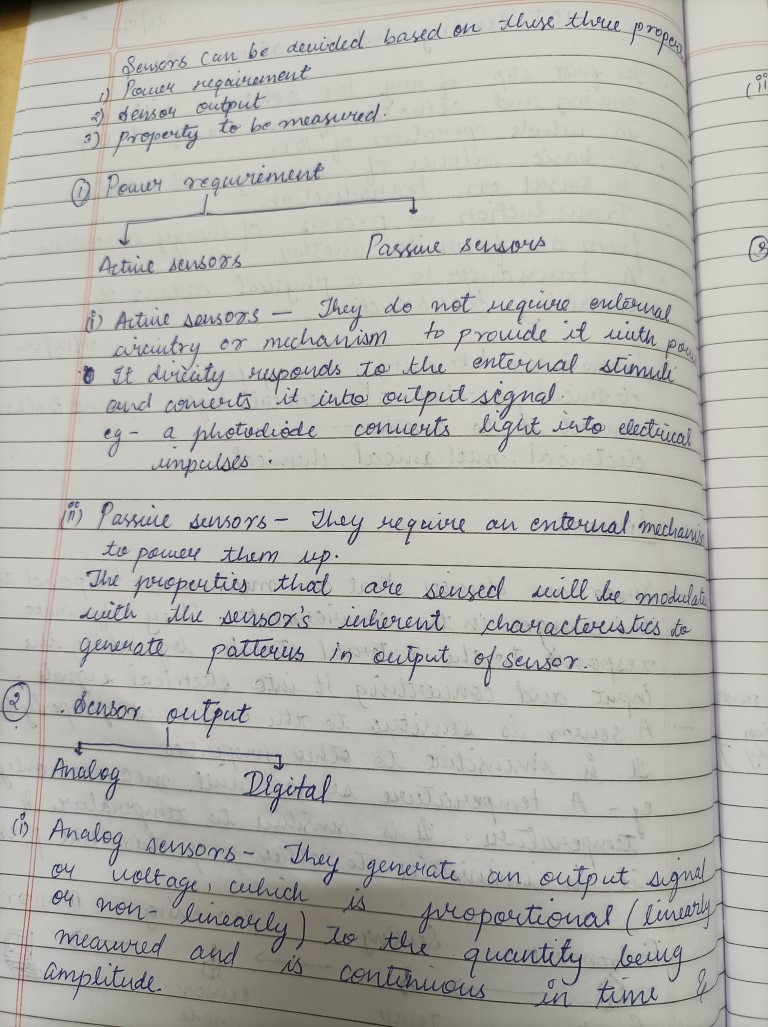 Sensors can be devided based on these three proper
1) Power requirement
2) Sensor output
3) property to be measured.
① Power requirement
Active sensors Passive sensors
(i) Active sensors — They do not require external
circuitry or mechanism to provide it with pow
It directly responds to the external stimuli
and converts it into output signal.
eg - a photodiode converts light into electrical
impulses.
(ii) Passive sensors - They require an external mechanis
to power them up.
The properties that are sensed will be modulate
with the sensor's inherent characteristics to
generate patterns in output of sensor.
② Sensor output
Analog Digital
(i) Analog sensors - They generate an output signal
or voltage, which is proportional (linearly
or non-linearly) to the quantity being
measured and is continuous in time &
amplitude.
(ii
③